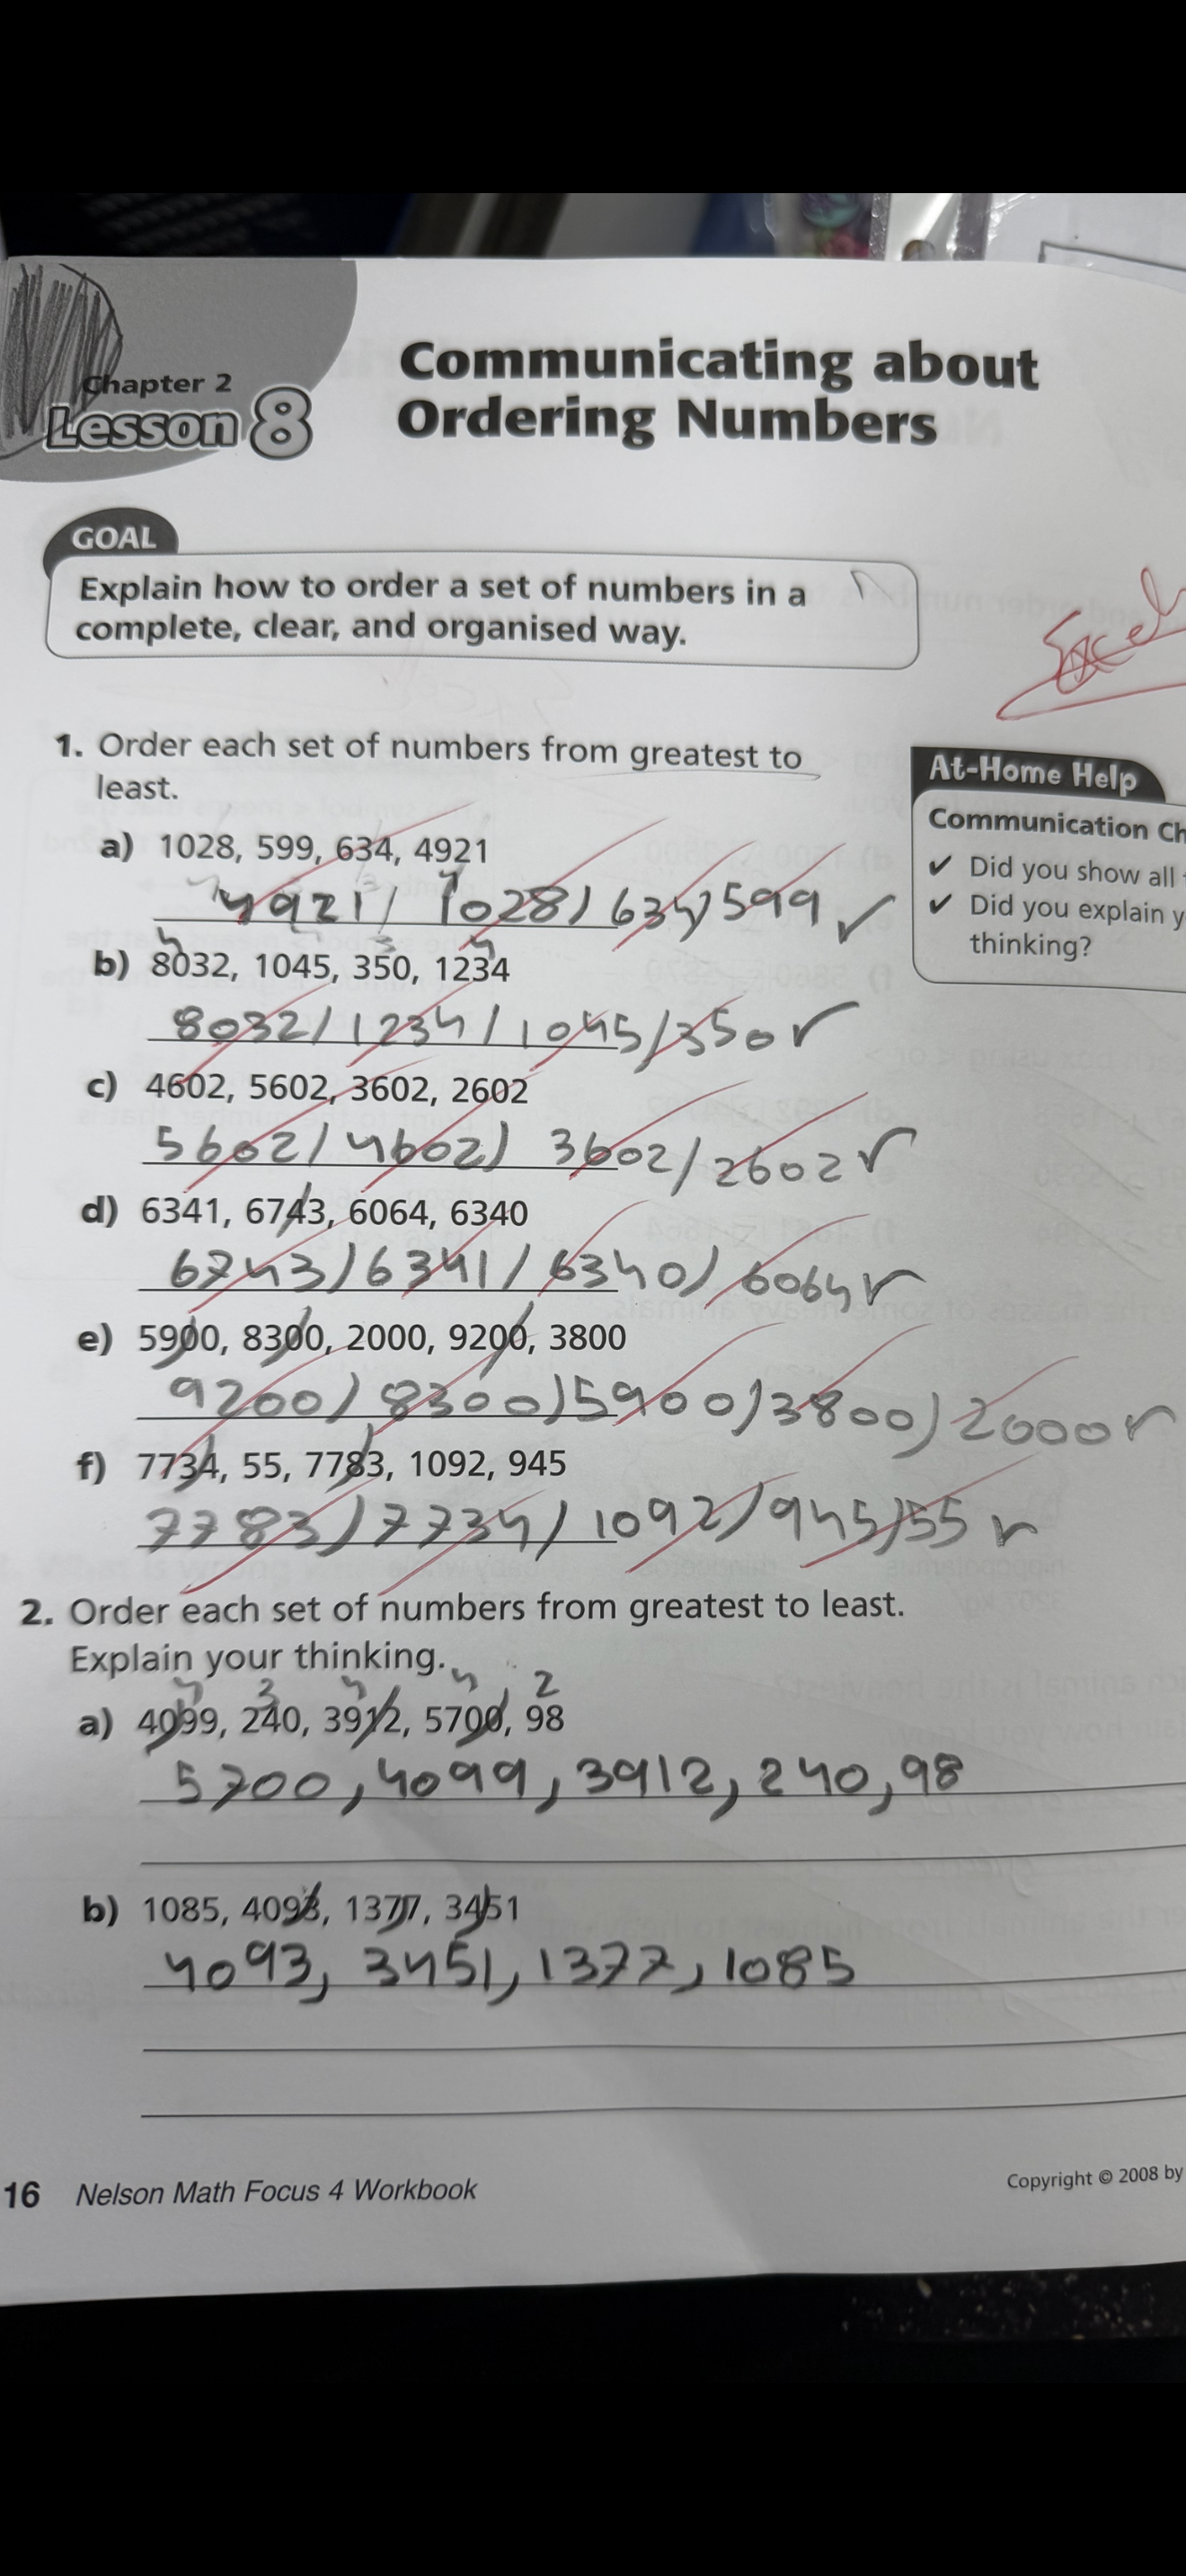 Chapter 2
Lesson 8
Communicating about
Ordering Numbers
GOAL
Explain how to order a set of numbers in a
complete, clear, and organised way.
1. Order each set of numbers from greatest to
least.
a) 1028, 599, 634, 4921
4921/ 1028/ 634/ 599 ✓
4 3 4
b) 8032, 1045, 350, 1234
8032/ 1234/ 1045/ 350 ✓
c) 4602, 5602, 3602, 2602
5602/ 4602/ 3602/ 2602 ✓
d) 6341, 6743, 6064, 6340
6743/ 6341/ 6340/ 6064 ✓
e) 5900, 8300, 2000, 9200, 3800
9200/ 8300/ 5900/ 3800/ 2000 ✓
f) 7734, 55, 7783, 1092, 945
7783/ 7734/ 1092/ 945/ 55 ✓
At-Home Help
Communication Ch
✔ Did you show all
✔ Did you explain y
thinking?
2. Order each set of numbers from greatest to least.
Explain your thinking.
4 3 4 4 2
a) 4099, 240, 3912, 5700, 98
5700, 4099, 3912, 240, 98
b) 1085, 4093, 1377, 3451
4093, 3451, 1377, 1085
16 Nelson Math Focus 4 Workbook
Copyright © 2008 by